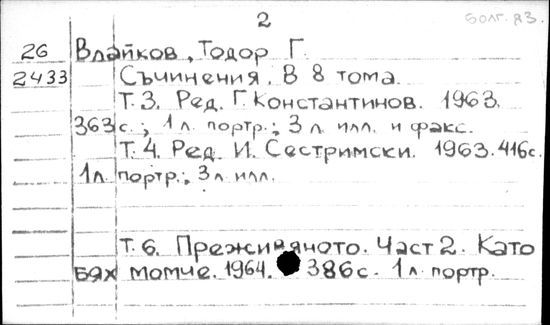 2
Болг. яз.
26 Влайков, Тодор Г.
2433 Съчинения. В 8 тома.
Т. 3. Ред. Г. Константинов. 1963.
363 с.; 1 л. портр.; 3 л. илл. и факс.
Т. 4. Ред. И. Сестримски. 1963. 416 с.
1 л. портр.; 3 л. илл.
Т. 6. Преживяното. Част 2. Като
бях момче. 1964. 386 с. 1 л. портр.